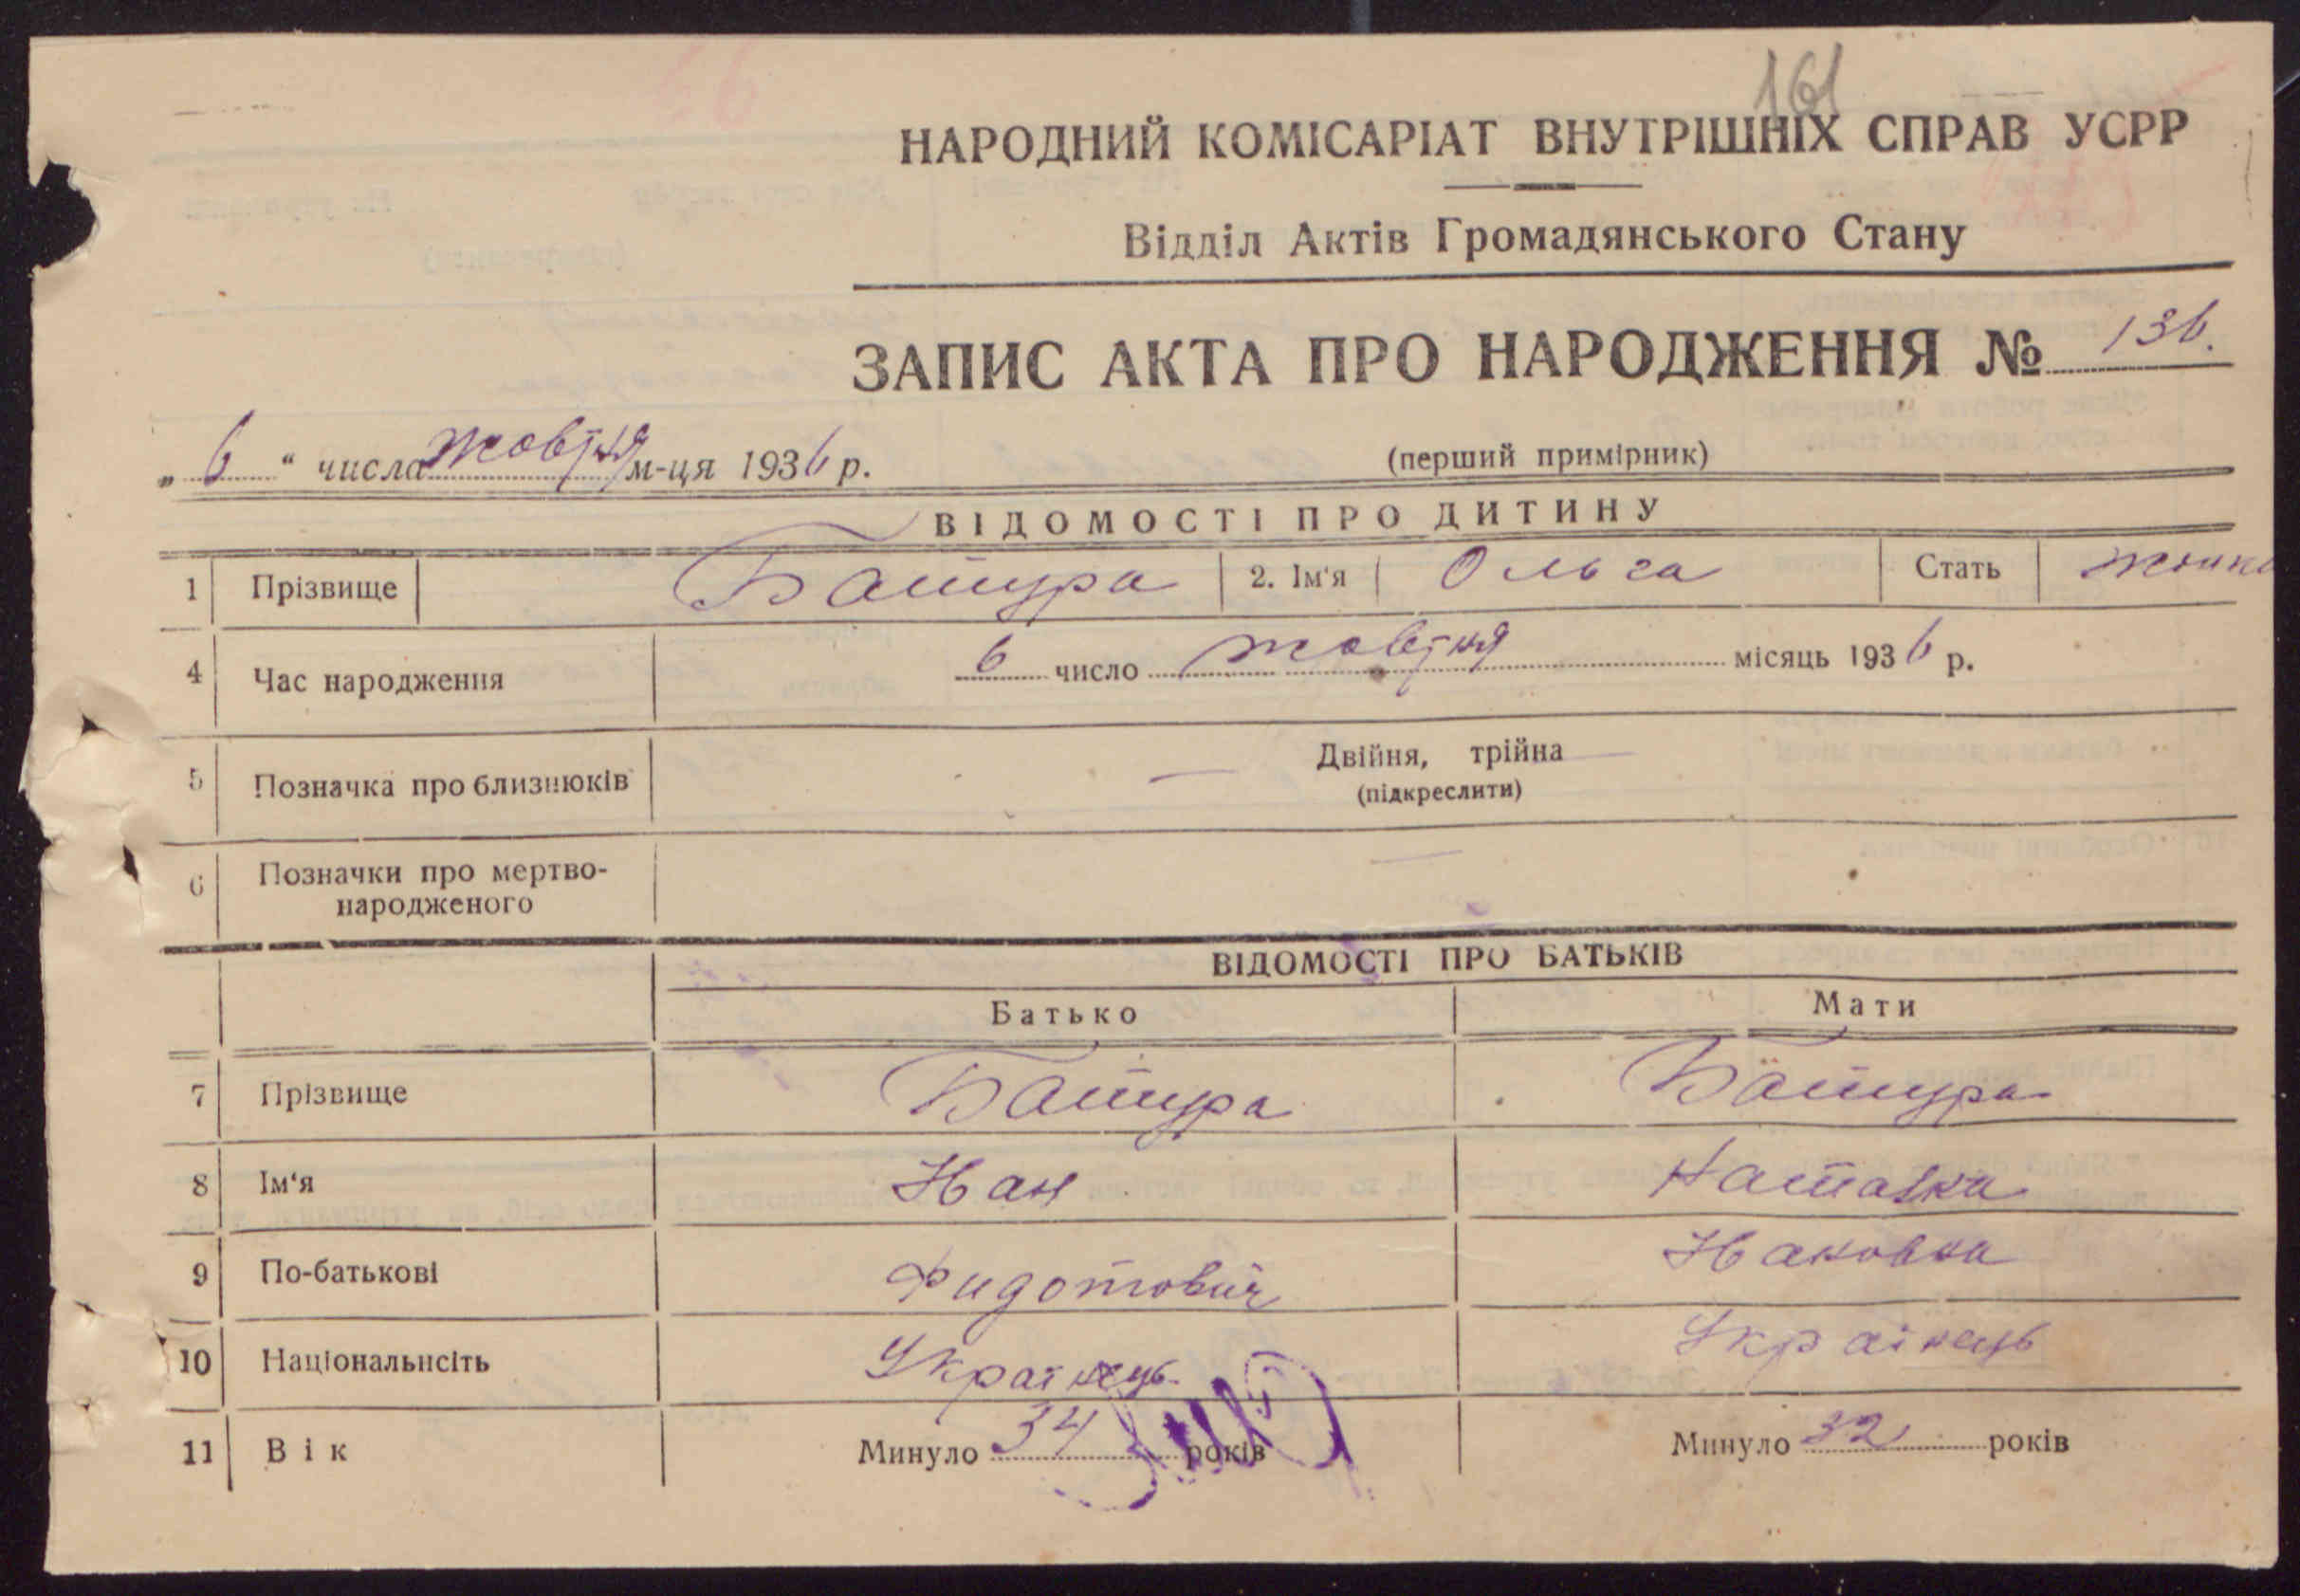 161
НАРОДНИЙ КОМІСАРІАТ ВНУТРІШНІХ СПРАВ УСРР
Відділ Актів Громадянського Стану
ЗАПИС АКТА ПРО НАРОДЖЕННЯ № 136.
„ 6 “ числа жовтня м-ця 1936 р. (перший примірник)
ВІДОМОСТІ ПРО ДИТИНУ
1 Прізвище Батура 2. Ім'я Ольга Стать
4 Час народження 6 число жовтня місяць 1936 р.
5 Позначка про близнюків Двійня, трійна
(підкреслити)
6 Позначки про мертво-
народженого
ВІДОМОСТІ ПРО БАТЬКІВ
Батько Мати
7 Прізвище Батура Батура
8 Ім'я Іван Наталка
9 По-батькові Фидотович Івановна
10 Національнсіть Українець Українець
11 Вік Минуло 34 років Минуло 32 років